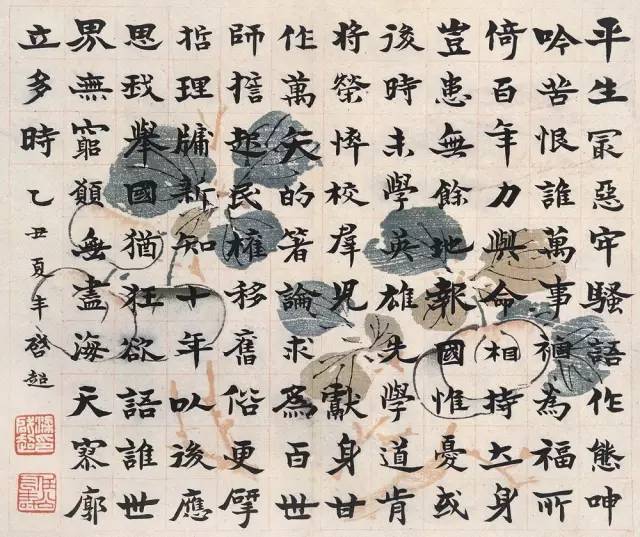 平生冣惡牢騷語作態呻
吟苦恨誰萬事禍為福所
倚百年力與命相持立身
豈患無餘地報國惟憂或
後時未學英雄先學道肯
將榮悴校羣兒獻身甘
作萬矢的著論求為百世
師起民權移舊俗更揅
哲理牖新知十年以後應
思我舉國猶狂欲語誰世
界無窮願無盡海天寥廓
立多時 乙丑夏啓超